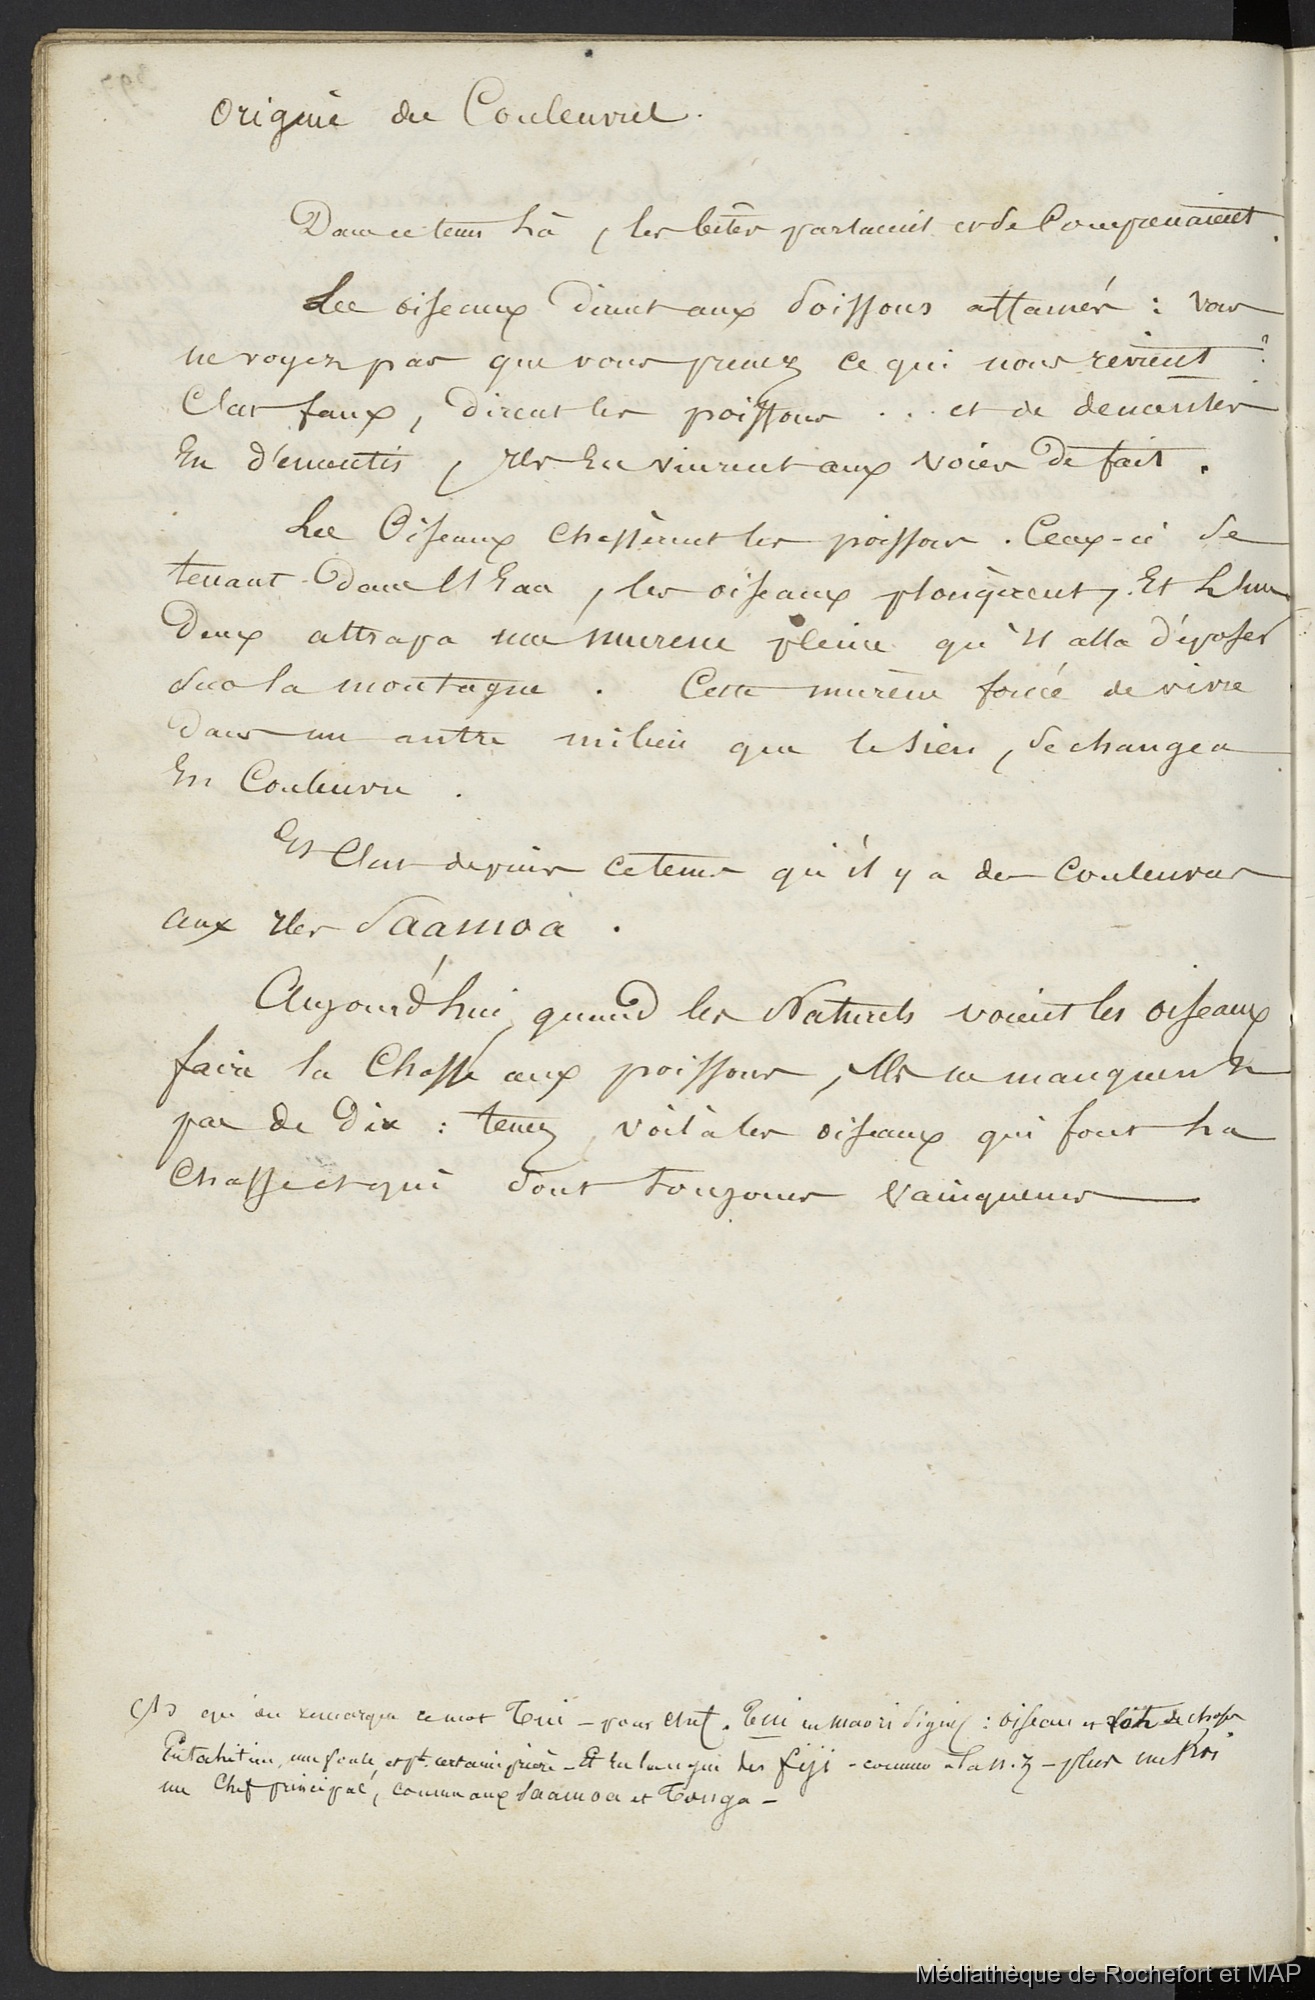 Origine des Couleuvres.
Dans ce tems là, les bêtes parlaient et se Comprenaient.
Les oiseaux dirent aux poissons affamés : vous
ne voyez pas que vous prenez ce qui nous revient ?
C'est faux, dirent les poissons ... et de démentis
En démentis, ils En vinrent aux voies De fait.
Les Oiseaux chassèrent les poissons. Ceux-ci se
tenant Dans l'Eau, les oiseaux plongèrent, Et L'un
Deux attrapa une murène pleine qu'il alla déposer
sur la montagne. Cette murène forcée de vivre
dans un autre milieu que le sien, se changea
En Couleuvre.
Et C'est depuis ce tems qu'il y a des Couleuvres
aux Iles Saamoa.
Aujourd'hui, quand les Naturels voient les oiseaux
faire la Chasse aux poissons, ils ne manquent
pas de Dire : tenez voilà les oiseaux qui font la
Chasse et qui sont toujours vainqueurs
qu'on remarque ce mot Tui - pour chef. Tui en maori signif : oiseau et
En tahitien, une foule, et pt. certaine prière - Et En langue des fiji - comme à la n. z - plus un Roi
un Chef principal, comme aux Saamoa et Tonga -
Médiathèque de Rochefort et MAP